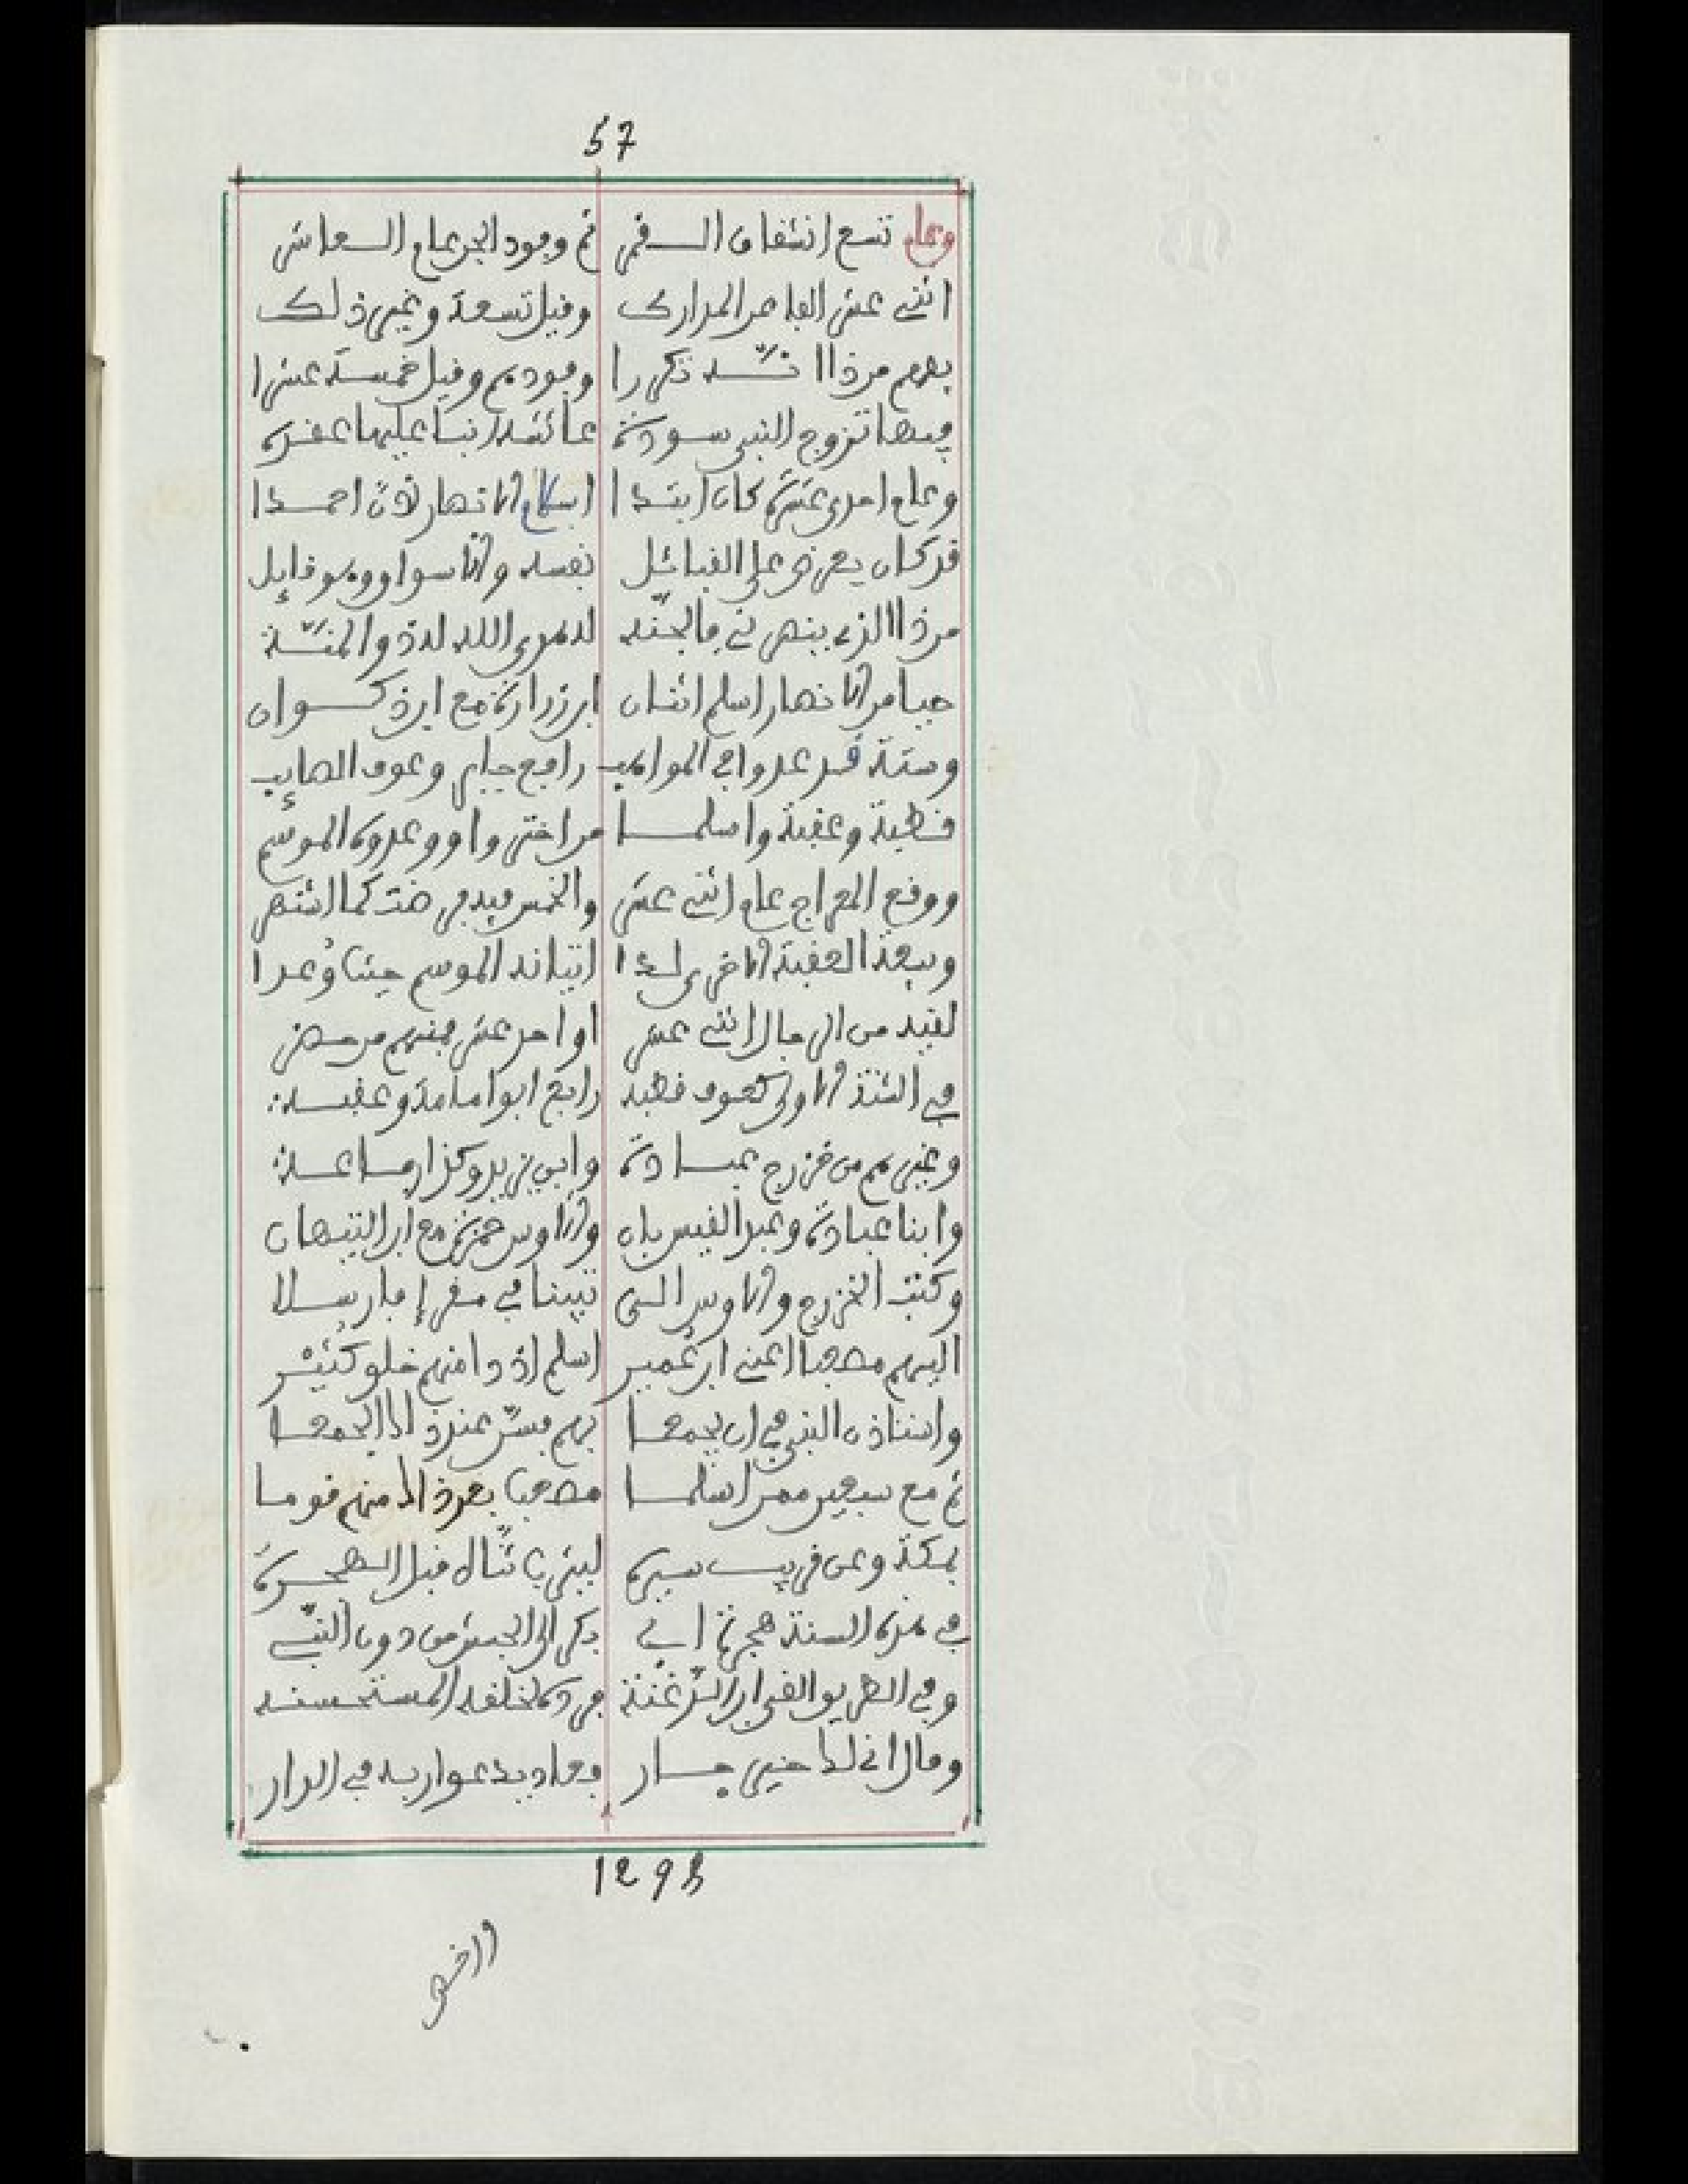 57
وعام تسع انشقاق القمر ثم وجود الجن عام العاشر
اثنى عشر الفا من المدارك وقيل تسعة وغير ذلك
بعدهم من ذا انسه تكررا وجودهم وقيل خمسة عشرا
فيها تزوج النبي سودة عائشة ايضا عليها عقده
وعام احدى عشرة كان ابتدا اسلام الانصار لان احمدا
قد كان يعرض على القبائل نفسه والاسواق وهو قايل
من ذا الذي ينصرني فالجنه له من الله له ذو المنة
جبا من الانصار اسلم اثنان ابن زرارة مع ابن ذكوان
وستة قد عدوا في المواهب رافع جابر وعوف الصايب
قطبة وعقبة واسلما من اختر واو وعدوه الموسم
ووقع المعراج عام اثنى عشر والخمس فيه فرضت كما اشتهر
وبيعة العقبة الاخرى لدا اتيانه الموسم حيثا وعدا
لقيه من الرجال اثنى عشر او احد عشر منهم من حضر
في السنة الاولى كعوف قطبه رافع ابو امامة وعقبه
وغيرهم من خزرج عبادة وابي يزيد وكذا ساعده
وابنا عبادة وعبد القيس بان والاوس حمزة مع ابن التيهان
وكتب الخزرج والاوس الى نبينا في مقرإ فارسلا
اليهم مصعبا اعني ابن عمير اسلم اذ دا منهم خلق كثير
واستاذن النبي في ان يجمعا بهم فسر عند ذاك الجمعا
ثم مع سبعين ممن اسلما مصعبا بعد ذاك منهم قوما
بمكة وعن قريب سيره ليثرب قال قبل الهجرة
في هذه السنة هجرة ابي بكر الى الحبش من دون النبي
وفي الطريق القى ابن الدغنة فرده لخلقه المستحسنه
وقال اني لك خير جار فعاد يدعو ربه في الدار
1293